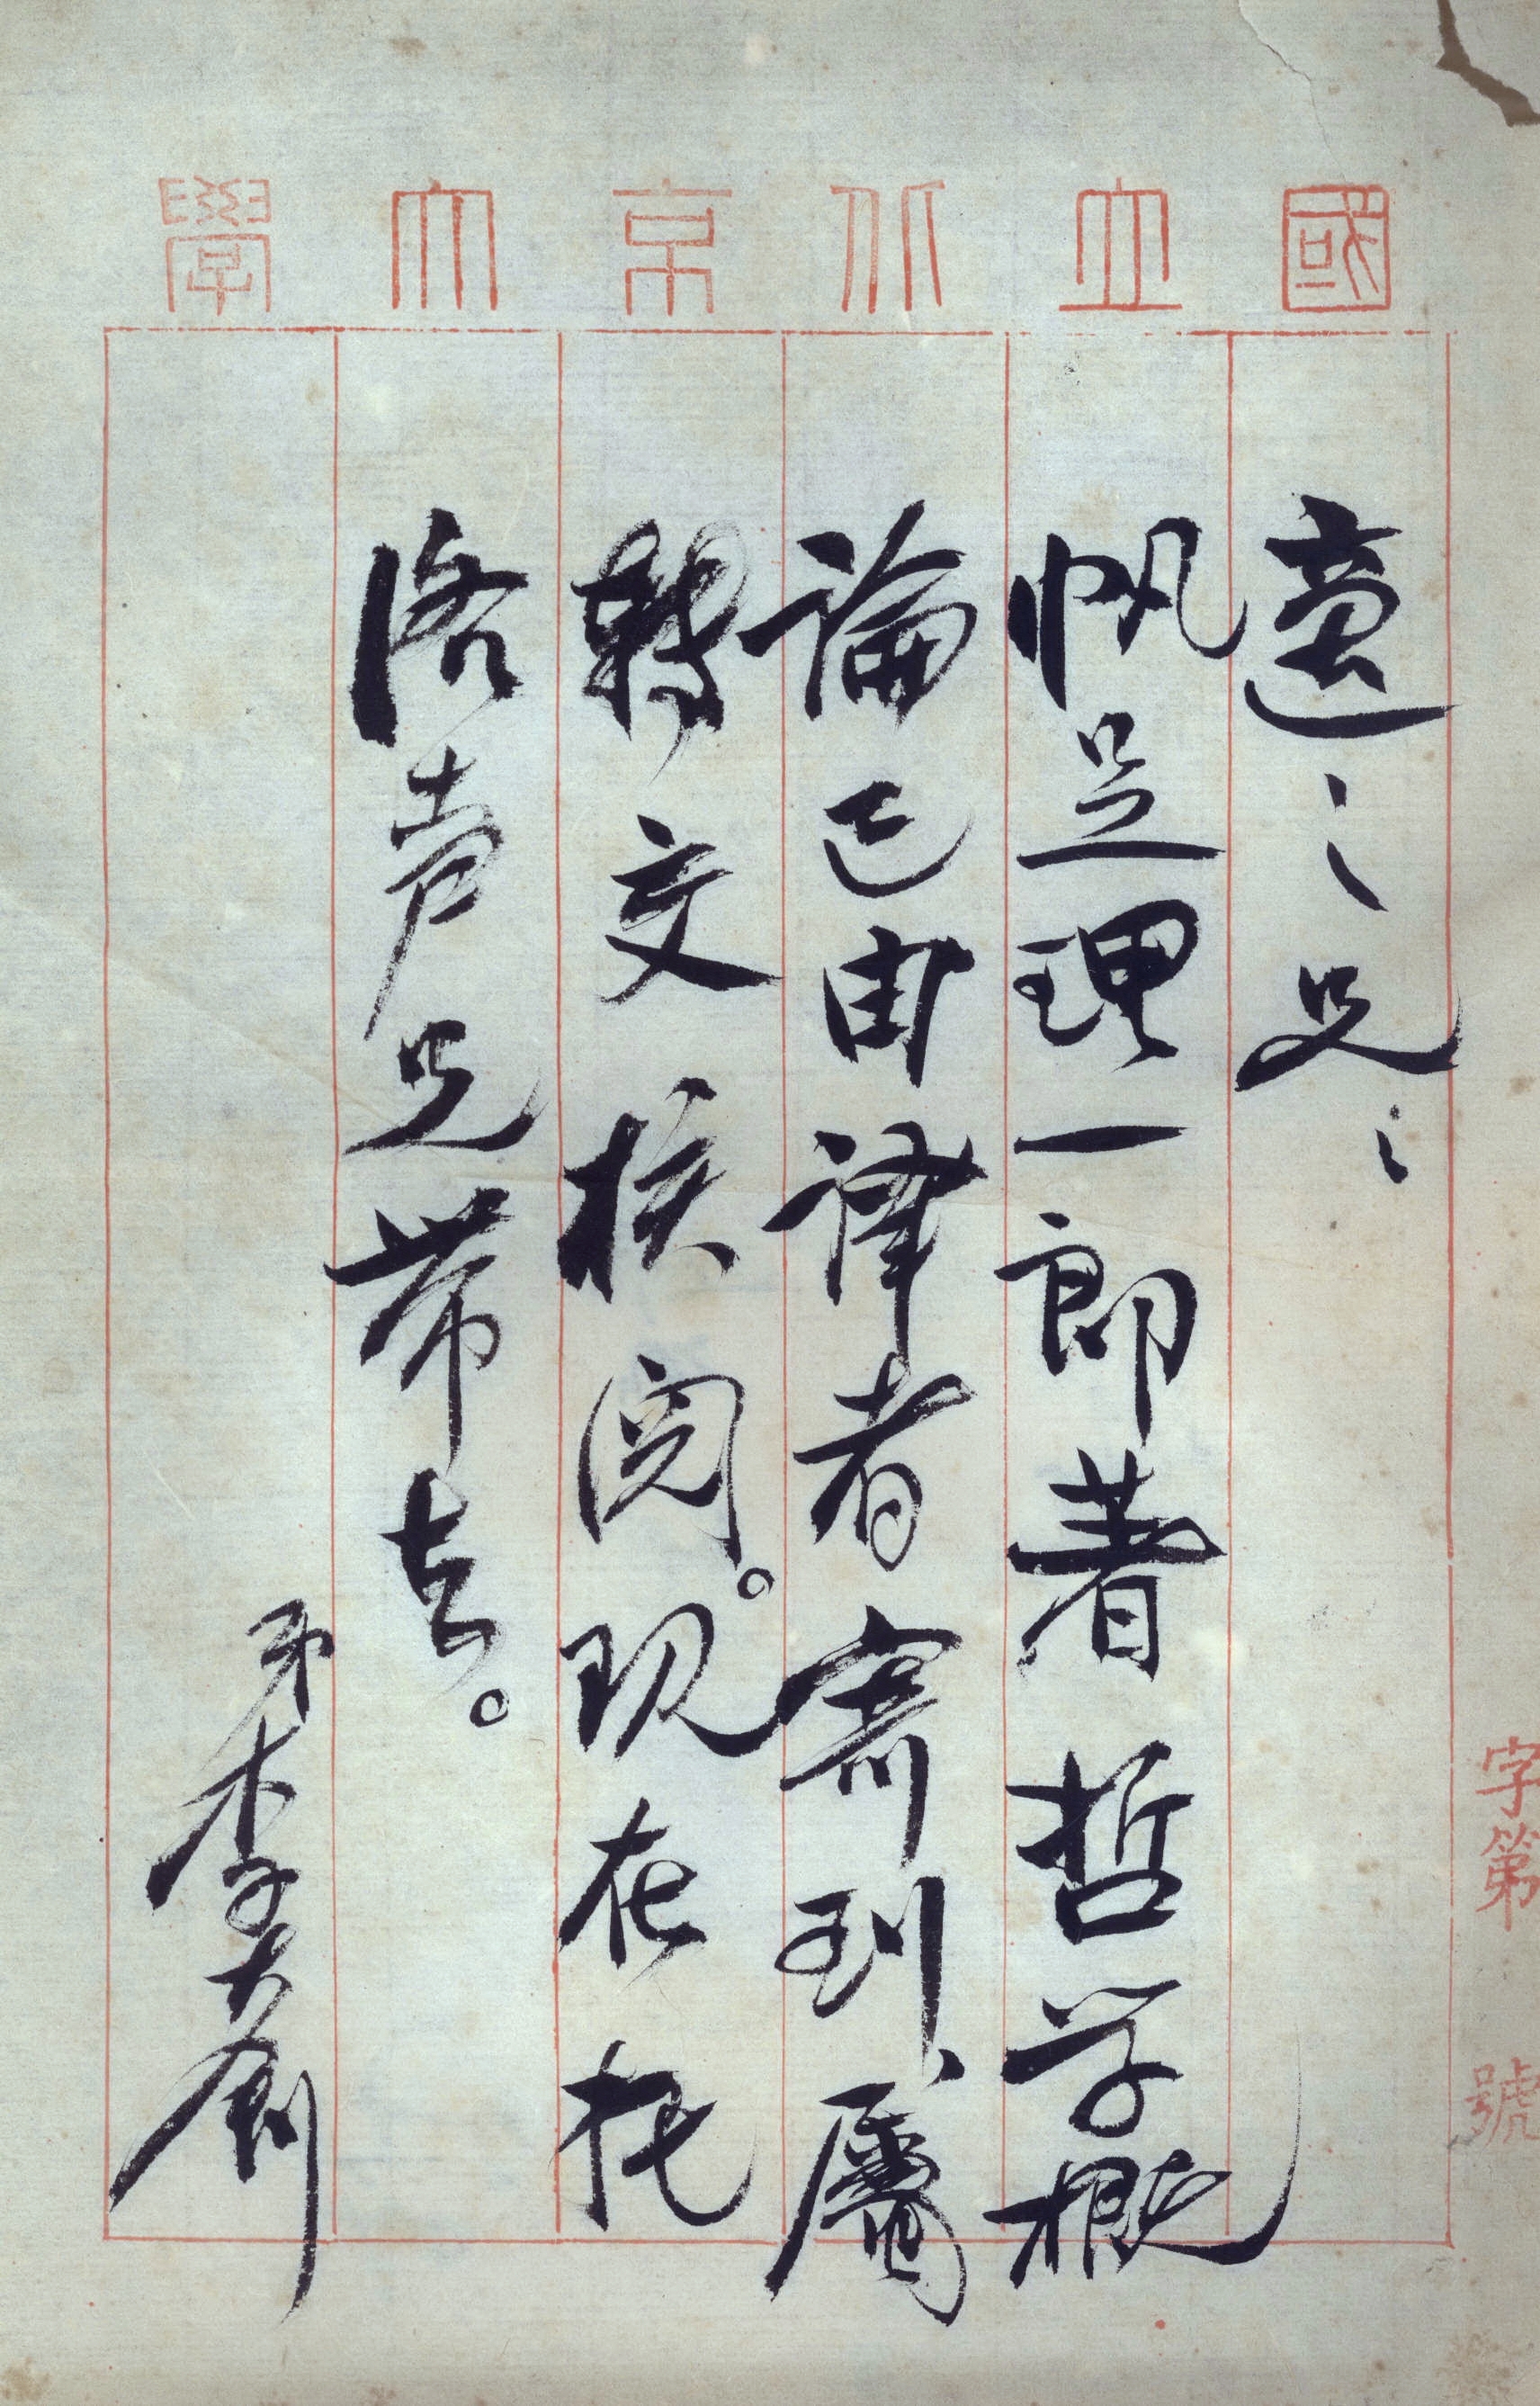 國立北京大學
適之兄：
帆足理一郎著哲学概
論已由译者寄到，屬
轉交核阅。现在托
洛声兄带去。
弟李大釗
字第 號